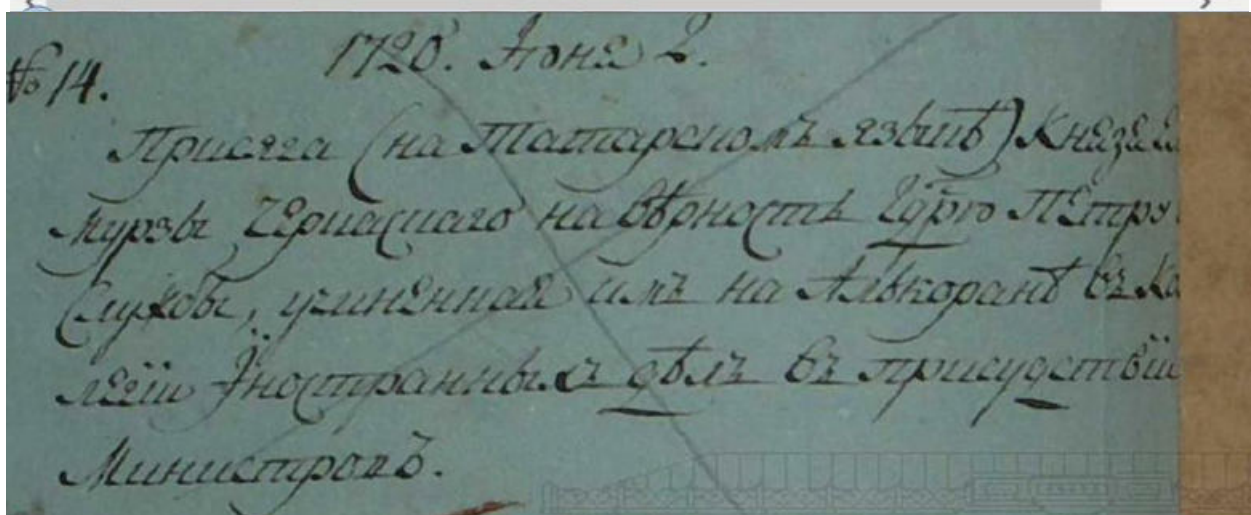 № 14. 1720. Іюня 2.
Присяга (на Татарскомъ языкѣ) Князя
мурзы Черкаскаго на вѣрность Гдрю Петру
Службы, учиненная имъ на Алькоранѣ въ Ко
легіи Іностранныхъ дѣлъ въ присудствіи
Министровъ.